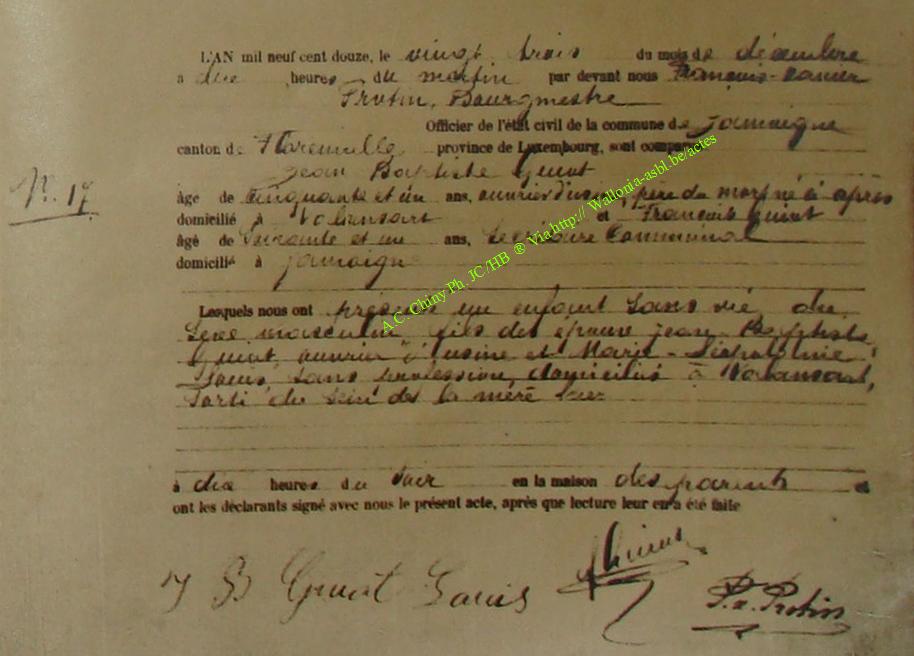 L'AN mil neuf cent douze, le vingt trois du mois de décembre
a dix heures du matin par devant nous François-Xavier
Protin, Bourgmestre
Officier de l'état civil de la commune de Jamoigne
canton de Florenville province de Luxembourg, sont comparus
Jean Baptiste Guiot
N. 17
âge de cinquante et un ans, ouvrier d'usine, père du mort né ci après
domicilié à Valansart et François Guiot
âgé de Soixante et un ans, Secrétaire Communal
domicilié à Jamoigne
Lesquels nous ont présenté un enfant sans vie, du
Sexe masculin, fils des époux Jean-Baptiste
Guiot, ouvrier d'usine et Marie-Léopoldine
Louis, sans profession, domiciliés à Valansart,
Sorti du sein de la mère hier
à dix heures du soir en la maison des parents et
ont les déclarants signé avec nous le présent acte, après que lecture leur en a été faite
J B Guiot Louis
F. x. Protin
A.C. Chiny Ph. JC/HB ® Via http:// Wallonia-asbl.be/actes